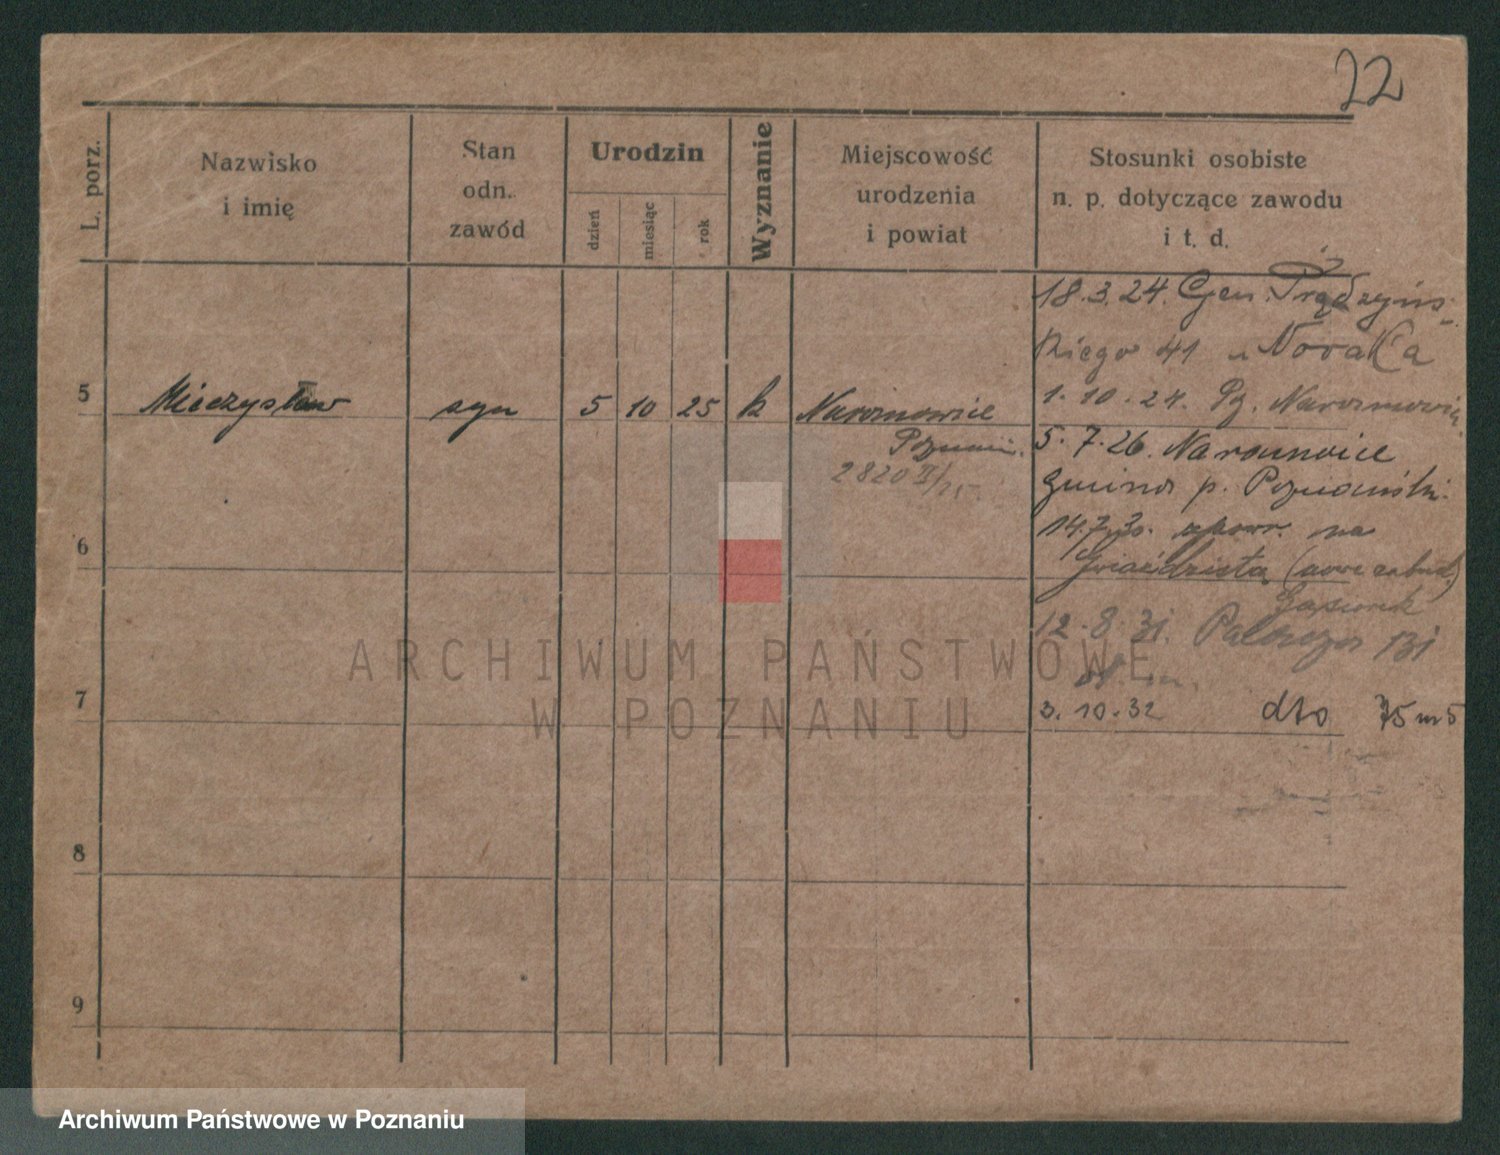 22
L. porz.
Nazwisko
i imię
Stan
odn.
zawód
Urodzin
dzień
miesiąc
rok
Wyznanie
Miejscowość
urodzenia
i powiat
Stosunki osobiste
n. p. dotyczące zawodu
i t. d.
18.3.24. Gen. Prądzyńs-
kiego 41 u Novaka
5 Mieczysław syn 5 10 25 k Naramowice
1.10.24. Pz. Naramowice
Poznań.
5.7.26. Naramowice
2820 II/25
gmina p. Poznański.
14.7.30. na
6
Gwiaździsta (nowe zabud.)
Gąsiorek
12.8.31.
7
3.10.32 dto 75 m 5
8
9
ARCHIWUM PAŃSTWOWE
W POZNANIU
Archiwum Państwowe w Poznaniu